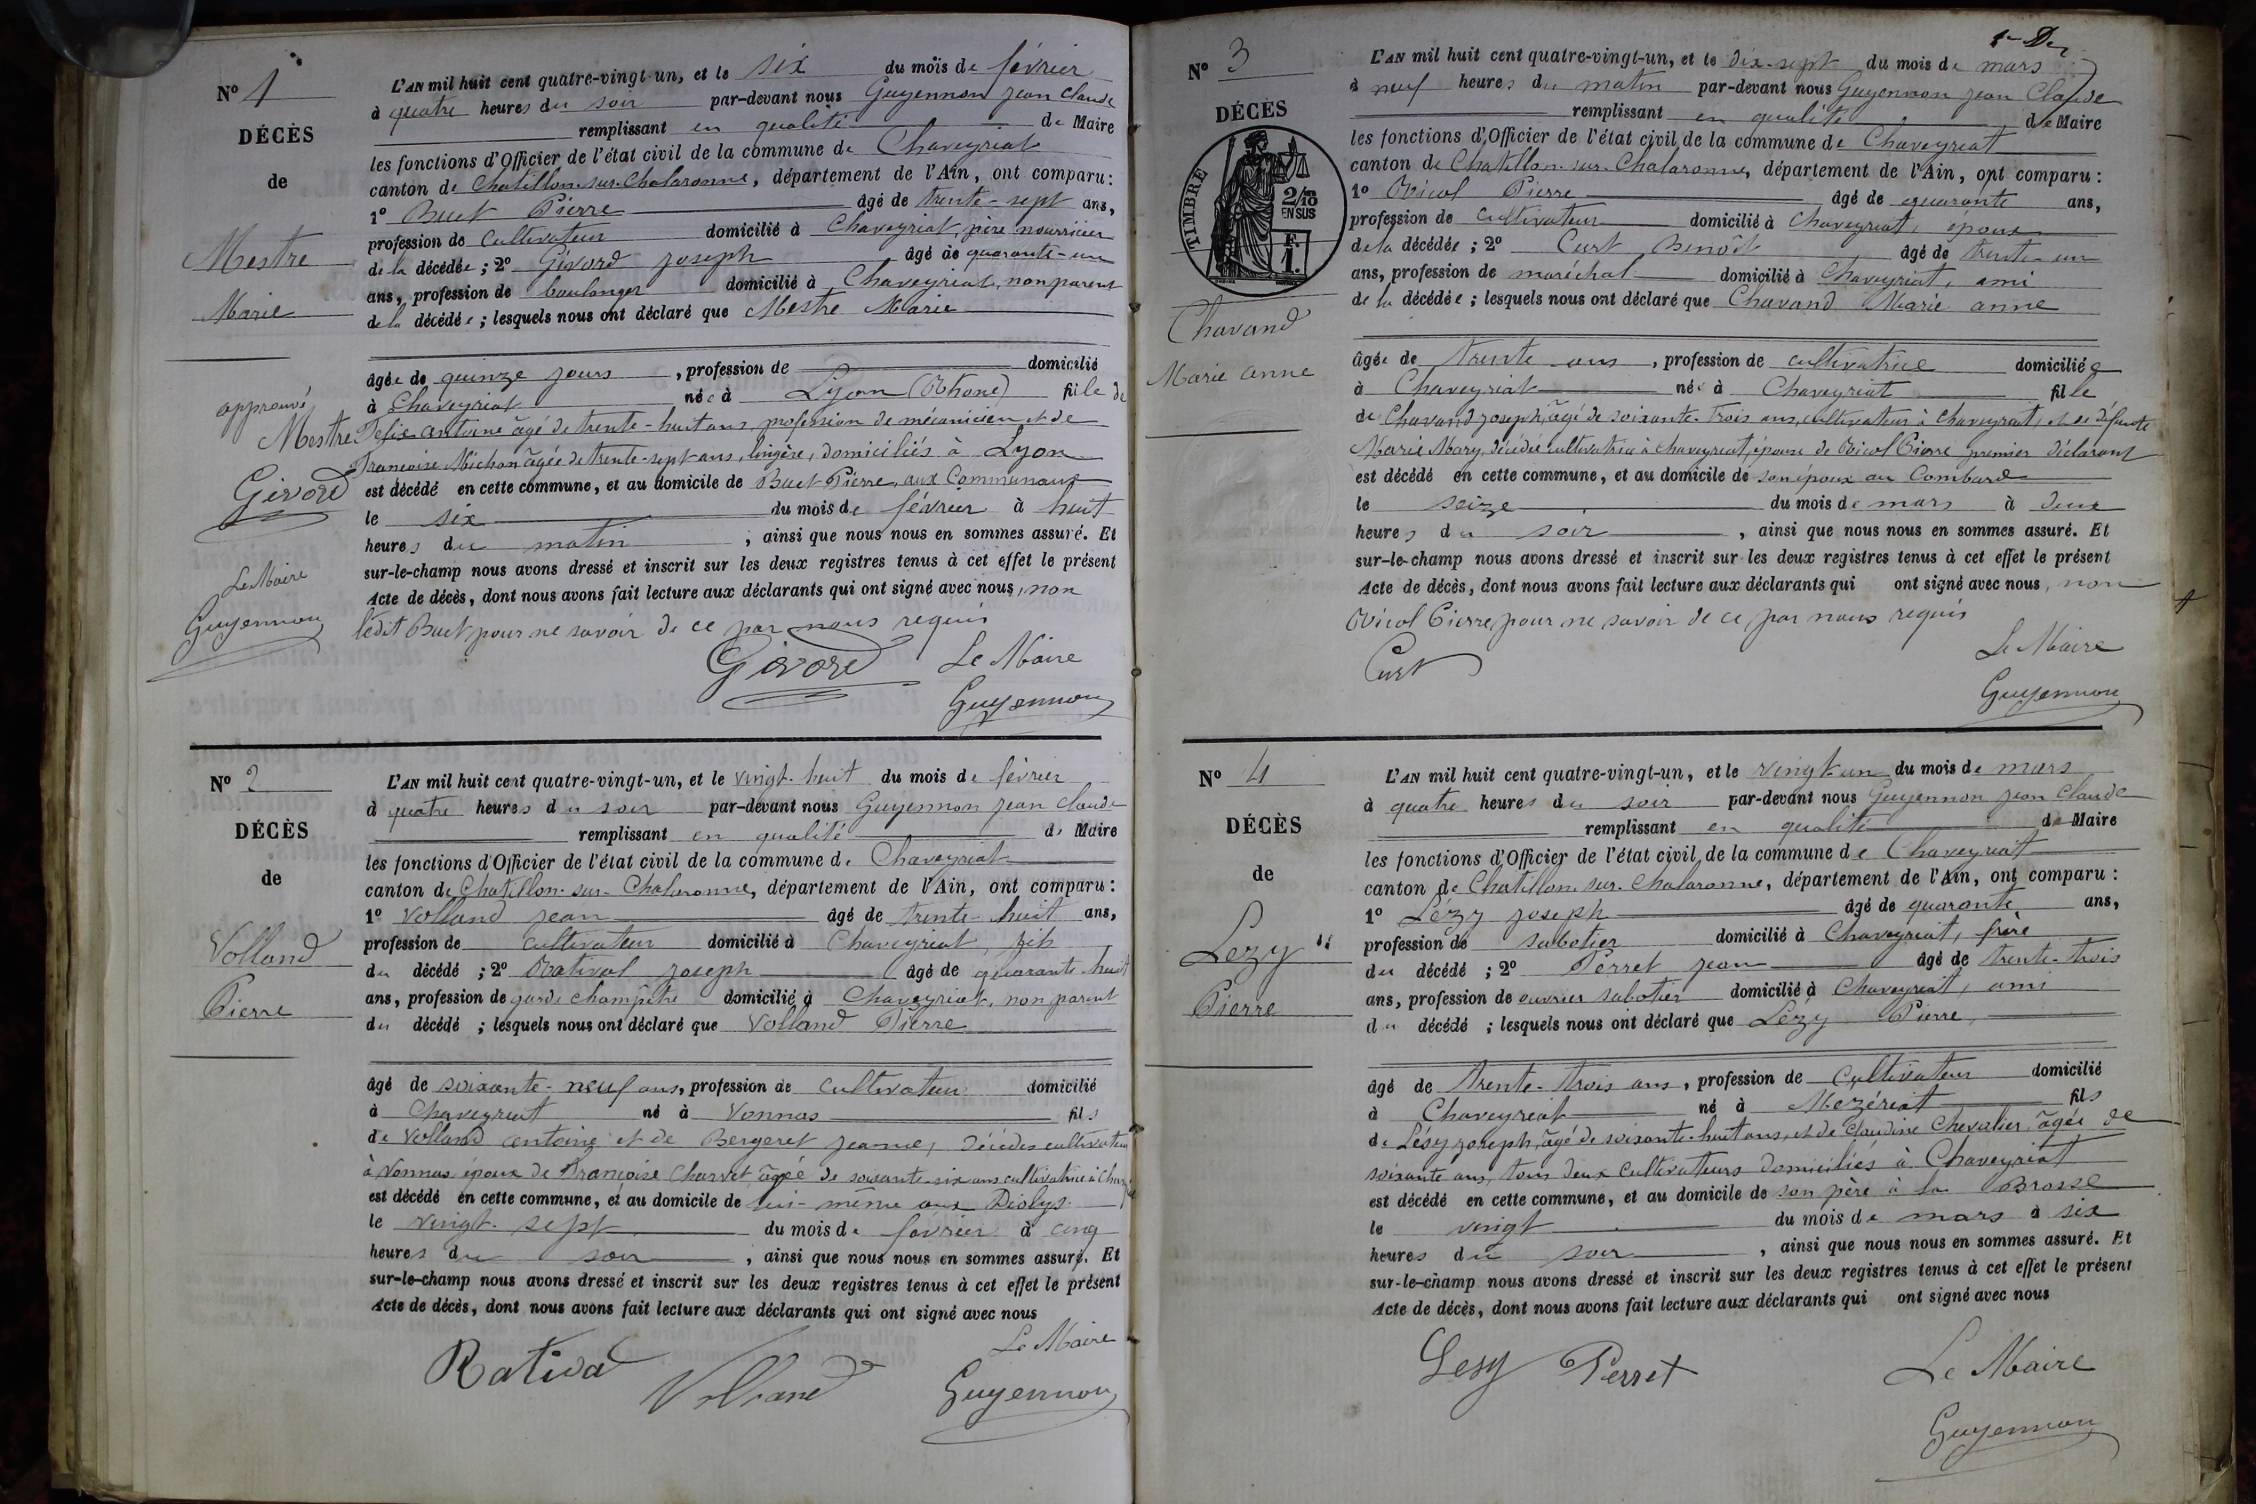 N° 1
DÉCÈS
de
Mestre
Marie
approuvé
Mestre
Givord
Le Maire
Guyennon
L'AN mil huit cent quatre-vingt-un, et le six du mois de février
à quatre heures du soir par-devant nous Guyennon jean claude
remplissant en qualité de Maire
les fonctions d'Officier de l'état civil de la commune de Chaveyriat
canton de Chatillon-sur-Chalaronne, département de l'Ain, ont comparu:
1° Buet Pierre âgé de trente-sept ans,
profession de cultivateur domicilié à Chaveyriat, père nourricier
de la décédée ; 2° Givord joseph âgé de quarante-un
ans, profession de boulanger domicilié à Chaveyriat, non parent
de la décédée ; lesquels nous ont déclaré que Mestre Marie
âgée de quinze jours , profession de domicilié
à Chaveyriat née à Lyon (Rhone) fille de
antoine âgé de trente-huit ans, profession de mécanicien et de
Françoise Michon âgée de trente-sept ans, lingère, domiciliés à Lyon
est décédé en cette commune, et au domicile de Buet Pierre, aux Communaux
le six du mois de février à huit
heures du matin , ainsi que nous nous en sommes assuré. Et
sur-le-champ nous avons dressé et inscrit sur les deux registres tenus à cet effet le présent
Acte de décès, dont nous avons fait lecture aux déclarants qui ont signé avec nous, non
ledit Buet, pour ne savoir de ce par nous requis
Givord
Le Maire
Guyennon
N° 2
DÉCÈS
de
Volland
Pierre
L'AN mil huit cent quatre-vingt-un, et le vingt-huit du mois de février
à quatre heures du soir par-devant nous Guyennon jean claude
remplissant en qualité de Maire
les fonctions d'Officier de l'état civil de la commune de Chaveyriat
canton de Chatillon-sur-Chalaronne, département de l'Ain, ont comparu:
1° Volland jean âgé de trente-huit ans,
profession de cultivateur domicilié à Chaveyriat, fils
du décédé ; 2° Rativol joseph âgé de quarante-huit
ans, profession de garde champêtre domicilié à Chaveyriat, non parent
du décédé ; lesquels nous ont déclaré que Volland Pierre
âgé de soixante-neuf ans, profession de cultivateur domicilié
à Chaveyriat né à Vonnas fils
de Volland antoine et de Bergeret jeanne, décédés cultivateurs
à Vonnas époux de Françoise Charvet, âgée de soixante-six ans cultivatrice à
est décédé en cette commune, et au domicile de lui-même aux
le vingt-sept du mois de février à cinq
heures du soir , ainsi que nous nous en sommes assuré. Et
sur-le-champ nous avons dressé et inscrit sur les deux registres tenus à cet effet le présent
Acte de décès, dont nous avons fait lecture aux déclarants qui ont signé avec nous
Ratival
Volland
Le Maire
Guyennon
N° 3
DÉCÈS
TIMBRE
2/10
EN SUS
F.
1.
Chavand
Marie anne
L'AN mil huit cent quatre-vingt-un, et le dix-sept du mois de mars
à neuf heures du matin par-devant nous Guyennon jean Claude
remplissant en qualité de Maire
les fonctions d'Officier de l'état civil de la commune de Chaveyriat
canton de Chatillon-sur-Chalaronne, département de l'Ain, ont comparu:
1° Nicol Pierre âgé de quarante ans,
profession de cultivateur domicilié à Chaveyriat, époux
de la décédée ; 2° Curt Benoît âgé de trente-un
ans, profession de maréchal domicilié à Chaveyriat, ami
de la décédée ; lesquels nous ont déclaré que Chavand Marie anne
âgée de trente ans , profession de cultivatrice domiciliée
à Chaveyriat née à Chaveyriat fille
de Chavand joseph, âgé de soixante-trois ans, cultivateur à Chaveyriat, et de défunte
Marie Mary, décédée cultivatrice à Chaveyriat, épouse de Nicol Pierre premier déclarant
est décédé en cette commune, et au domicile de son époux au Combard
le seize du mois de mars à deux
heures du soir , ainsi que nous nous en sommes assuré. Et
sur-le-champ nous avons dressé et inscrit sur les deux registres tenus à cet effet le présent
Acte de décès, dont nous avons fait lecture aux déclarants qui ont signé avec nous, non
Nicol Pierre, pour ne savoir de ce, par nous requis
Curt
Le Maire
Guyennon
N° 4
DÉCÈS
de
Lezy
Pierre
L'AN mil huit cent quatre-vingt-un, et le vingt-un du mois de mars
à quatre heures du soir par-devant nous Guyennon jean Claude
remplissant en qualité de Maire
les fonctions d'Officier de l'état civil de la commune de Chaveyriat
canton de Chatillon-sur-Chalaronne, département de l'Ain, ont comparu:
1° Lézy joseph âgé de quarante ans,
profession de sabotier domicilié à Chaveyriat, frère
du décédé ; 2° Perret jean âgé de trente-trois
ans, profession de ouvrier sabotier domicilié à Chaveyriat, ami
du décédé ; lesquels nous ont déclaré que Lézy Pierre,
âgé de trente-trois ans, profession de cultivateur domicilié
à Chaveyriat né à Mezériat fils
de Lésy joseph, âgé de soixante-huit ans, et de Claudine Chevalier, âgée de
soixante ans, tous deux cultivateurs domiciliés à Chaveyriat
est décédé en cette commune, et au domicile de son père à la Brosse
le vingt du mois de mars à six
heures du soir , ainsi que nous nous en sommes assuré. Et
sur-le-champ nous avons dressé et inscrit sur les deux registres tenus à cet effet le présent
Acte de décès, dont nous avons fait lecture aux déclarants qui ont signé avec nous
Lesy
Perret
Le Maire
Guyennon